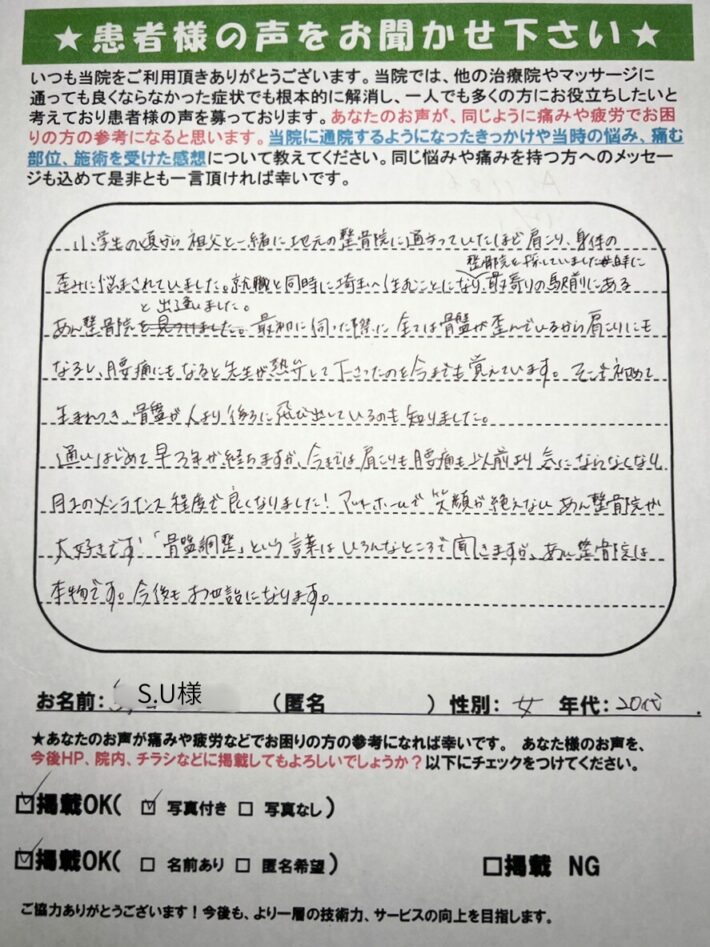 ★患者様の声をお聞かせ下さい★
いつも当院をご利用頂きありがとうございます。当院では、他の治療院やマッサージに
通っても良くならなかった症状でも根本的に解消し、一人でも多くの方にお役立ちしたいと
考えており患者様の声を募っております。あなたのお声が、同じように痛みや疲労でお困
りの方の参考になると思います。当院に通院するようになったきっかけや当時の悩み、痛む
部位、施術を受けた感想について教えてください。同じ悩みや痛みを持つ方へのメッセー
ジも込めて是非とも一言頂ければ幸いです。
小学生の頃から祖父と一緒に地元の整骨院に通っていたほど肩こり、身体の
整骨院を探していました
歪みに悩まされていました。就職と同時に埼玉へ住むことになり、最寄りの駅前にある
と出逢いました。
あん整骨院を見つけました。最初に伺った際に全ては骨盤が歪んでいるから肩こりにも
なるし、腰痛にもなると先生が熱弁して下さったのを今でも覚えています。そこで初めて
生まれつき、骨盤が人より後ろに飛び出しているのも知りました。
通いはじめて早3年が経ちますが、今では肩こりも腰痛も以前より気にならなくなり、
月1のメンテナンス程度で良くなりました!アットホームで笑顔が絶えないあん整骨院が
大好きです「骨盤調整」という言葉はいろんなところで聞きますが、あん整骨院は
本物です。今後もお世話になります。
お名前: S.U様 (匿名 ) 性別: 女 年代: 20代.
★あなたのお声が痛みや疲労などでお困りの方の参考になれば幸いです。 あなた様のお声を、
今後HP、院内、チラシなどに掲載してもよろしいでしょうか?以下にチェックをつけてください。
☑掲載OK( ☑ 写真付き □ 写真なし)
☑掲載OK( □ 名前あり □ 匿名希望) □掲載 NG
ご協力ありがとうございます!今後も、より一層の技術力、サービスの向上を目指します。